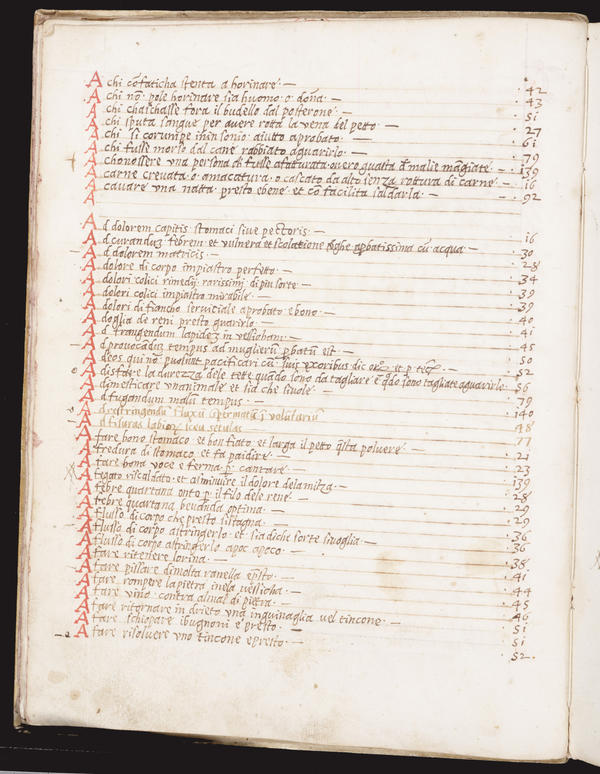 A chi cõ faticha stenta a horinare · 42
A chi nõ pole horinare sia huomo o dõna · 43
A chi chaschasse fora il budello dal posterone · 51
A chi sputa sangue per avere rotta la vena del petto · 27
A chi si corumpe in insonio aiutto aprobato · 61
A chi fusse morso dal cane rabbiato aguarirlo · 79
A chonossere una persona di fusse afatturata overo guatta malie mãgiate · 139
A carne crevata o amacatura o cascato da alto senza rottura di carne · 16
A cavare una natta presto e bene et cõ facilita saldarla · 92
A
A d dolorem capitis stomaci sive pectoris · 16
A d curanduz febrem et vulnera et scolatione apbatissima cũ acqua · 30
A d dolorem matricis · 28
A dolore di corpo impiastro perfetto · 34
A dolori colici rimedij rarissimj di piu sorte · 39
A dolori colici impiastro mirabile · 39
A dolori di fiancho serviciale aprobato e bono · 40
A doglia de reni presto guarirlo · 41
A d frangendum lapidez in vessicham · 45
A d provocãduz tempus ad muglierũ pbatũ est · 50
A d eos qui nõ possunt pacificari cũ suis uxoribus dic · 52
A disfare la durezza dele tette quãdo sono da tagliare e qdo sono tagliate aguarirle · 56
A dimesticare un animale et sia che si vole · 79
A d fugandum malũ tempus · 140
A d restringendũ fluxũ spermatis involutariũ · 48
A d fissuras labiorz seu setulas · 77
A fare bono stomaco et bon fiato et larga il petto qsta polvere · 21
A fredura di stomaco et fa paidire · 23
A fare bona voce e ferma p cantare · 139
A fegato riscaldato et asminuire il dolore dela mitza · 28
A febre quartana onto p il filo dele rene · 29
A febre quartana bevanda optima · 29
A flusso di corpo che presto si stagna · 36
A flusso di corpo astringerlo et sia di che sorte si voglia · 36
A flusso di corpo astringerlo apoc apoco · 38
A fare ritenere lorina · 41
A fare pissare di molta ranella e psto · 44
A fare rompere la pietra inela vessicha · 45
A fare vino contra al mal di pietra · 46
A fare ritornare in drieto una inguinaglia vel tincone · 51
A fare schiopare i bugnoni e presto · 51
A fare risolvere uno tincone e presto · 52